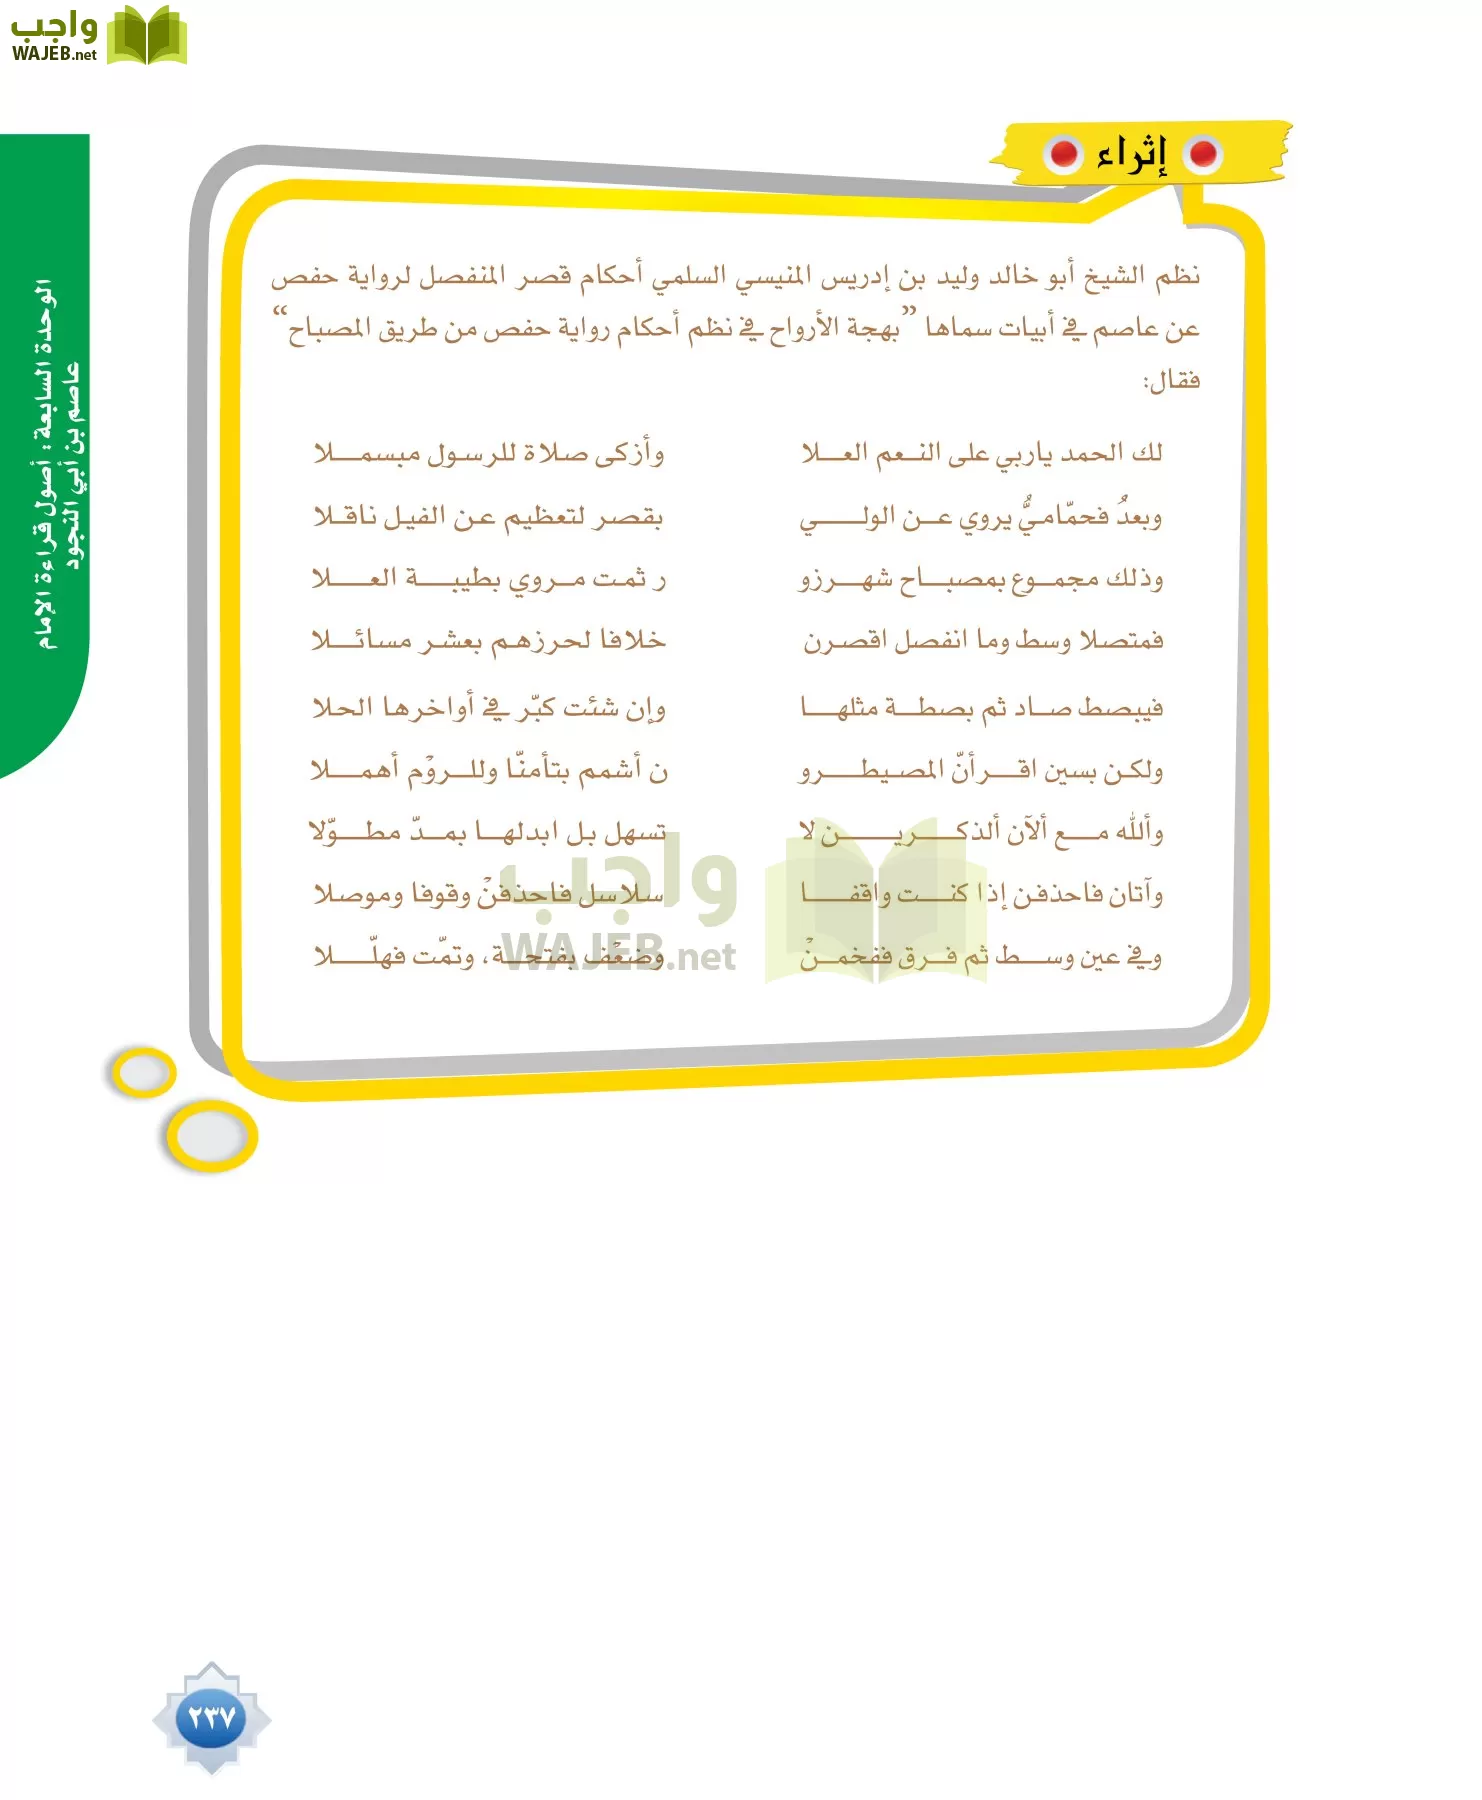 واجب
WAJEB.net
إثراء
نظم الشيخ أبو خالد وليد بن إدريس المنيسي السلمي أحكام قصر المنفصل لرواية حفص
عن عاصم في أبيات سماها ”بهجة الأرواح في نظم أحكام رواية حفص من طريق المصباح“
فقال:
لك الحمد ياربي على النعم العلا وأزكى صلاة للرسول مبسملا
وبعدُ فحمّاميُّ يروي عن الولي بقصر لتعظيم عن الفيل ناقلا
وذلك مجموع بمصباح شهرزو ر ثمت مروي بطيبة العلا
فمتصلا وسط وما انفصل اقصرن خلافا لحرزهم بعشر مسائلا
فيبصط صاد ثم بصطة مثلها وإن شئت كبّر في أواخرها الحلا
ولكن بسين اقرأنّ المصيطرو ن أشمم بتأمنّا وللروْم أهملا
وألله مع ألآن ألذكرين لا تسهل بل ابدلها بمدّ مطوّلا
وآتان فاحذفن إذا كنت واقفا سلاسل فاحذفنْ وقوفا وموصلا
وفي عين وسط ثم فرق ففخمنْ وضعْف بفتحة، وتمّت فهلّلا
واجب
WAJEB.net
الوحدة السابعة : أصول قراءة الإمام
عاصم بن أبي النجود
٢٣٧